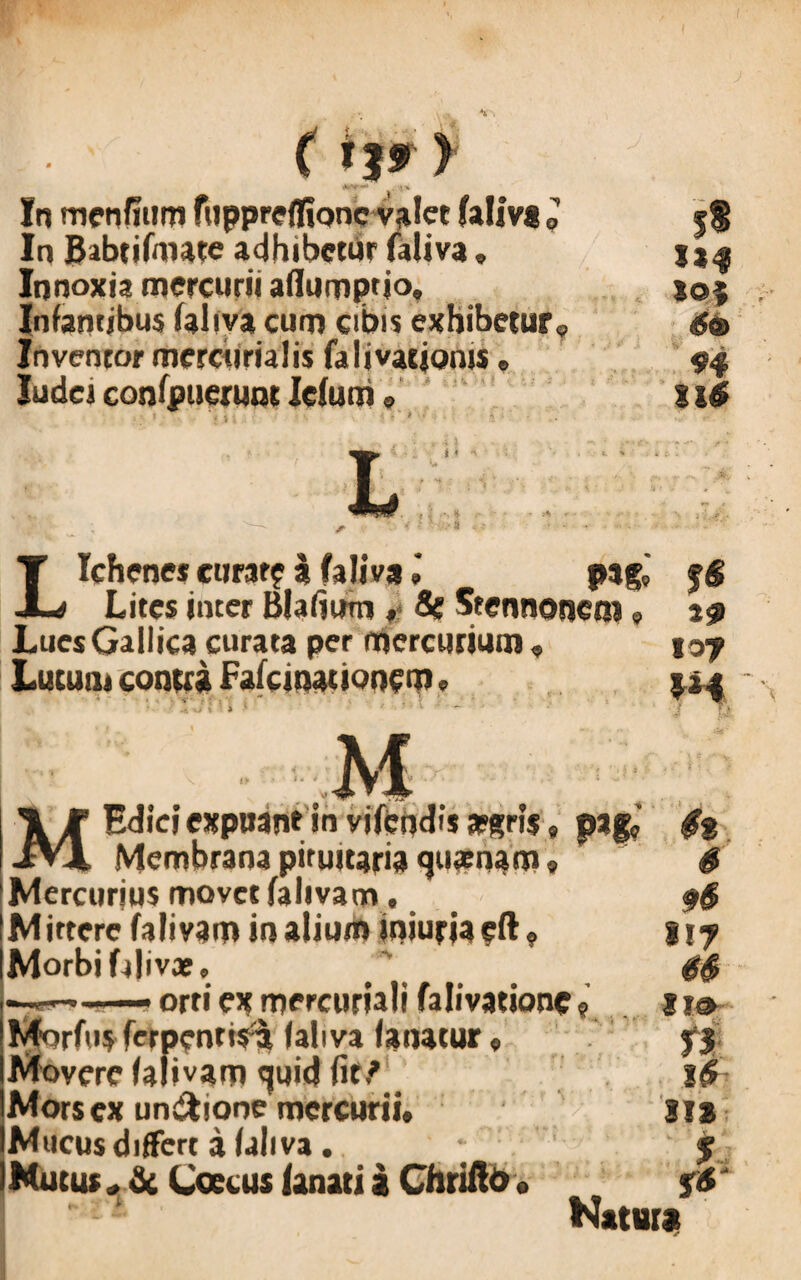 ( 139 )
In menſium ſuppreſſione valet ſaliva. 58
In Babtiſmate adhibetur ſaliva. 124
Innoxia mercurii aſſumptio. 105
Infantibus ſaliva cum cibis exhibetur. 60
Inventor mercurialis ſalivationis. 94
Iudei conſpuerunt Ieſum. 116
L
LIchenes curatę à ſaliva. pag. 56
Lites inter Blaſium, & Stennonem. 29
Lues Gallica curata per mercurium. 107
Lutum contrà Faſcinationem. 124
M
MEdici expuant in viſendis ægris. pag. 62
Membrana pituitaria quænam. 6
Mercurius movet ſalivam. 96
Mittere ſalivam in alium iniuria eſt. 117
Morbi ſalivæ. 66
——— orti ex mercuriali ſalivatione. 110
Morſus ſerpentis à ſaliva ſanatur. 53
Movere ſalivam quid ſit? 16
Mors ex unctione mercurii. 112
Mucus differt à ſaliva. 5
Mutus, & Coecus ſanati à Chriſto. 56
Natura